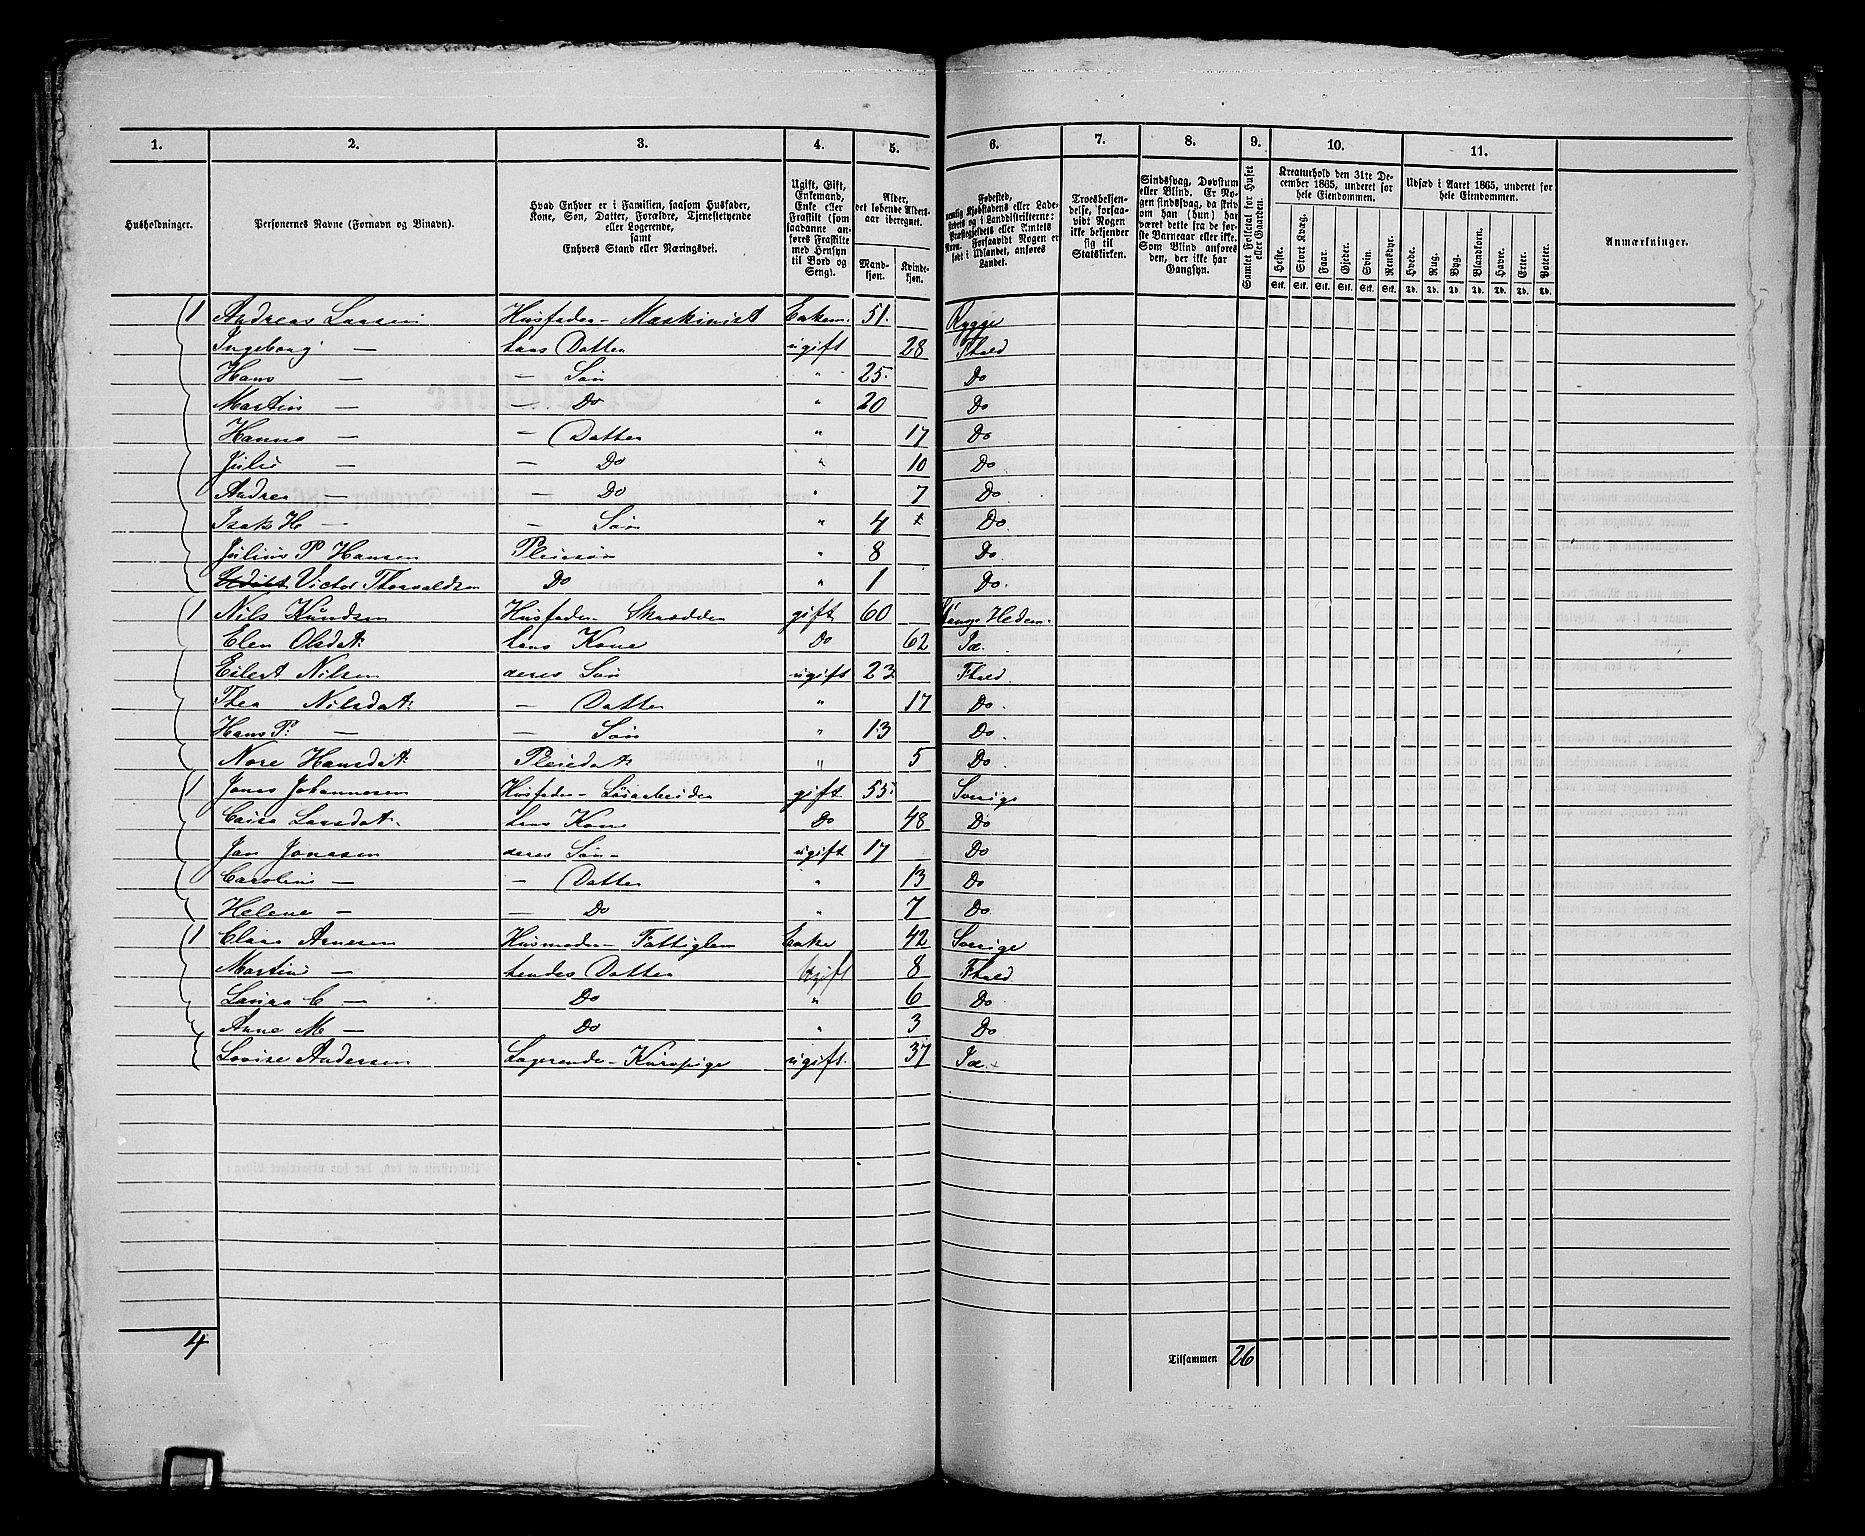 1. 2. 3. 4. 5. 6. 7. 8. 9. 10. 11.
Husholdninger.
Personernes Navne (Fornavn og Binavn).
Hvad Enhver er i Familien, saasom Husfader, Kone, Søn, Datter, Forældre, Tjenestetyende eller Logerende, samt Enhvers Stand eller Næringsvei.
Ugift, Gift, Enkemand, Enke eller Fraskilt (som saadanne anføres Fraskilte med Hensyn til Bord og Seng).
Alder, det løbende Alders-aar iberegnet.
Mand-kjøn. Kvinde-kjøn.
Fødested, nemlig Kjøbstadens eller Ladestedets og i Landdistrikterne: Præstegjældets eller Amtets Navn. Forsaavidt Nogen er født i Udlandet, anføres Landet.
Troesbekjendelse, forsaavidt Nogen ikke bekjender sig til Statskirken.
Sindssvag, Døvstum eller Blind. Er Nogen sindssvag, da skrives om han (hun) har været dette fra de første Barneaar eller ikke. Som Blind anføres den, der ikke har Gangsyn.
Samlet Folketal for Huset eller Gaarden.
Kreaturhold den 31te December 1865, underet for hele Eiendommen.
Heste. Stort Kvæg. Faar. Gjeder. Svin. Rensdyr.
Stk. Stk. Stk. Stk. Stk. Stk.
Udsæd i Aaret 1865, underet for hele Eiendommen.
Hvede. Rug. Byg. Blandkorn. Havre. Erter. Poteter.
Td. Td. Td. Td. Td. Td. Td.
Anmærkninger.
1 Andreas Larsen Husfader - Maskinist Enkem. 51. Rygge
Ingeborg — hans Datter ugift 28 Fhald
Hans — — Søn " 25. Do
Martin — — Do " 20 Do
Hanna — — Datter " 17 Do
Julie — — Do " 10 Do
Andrea — — Do " 7 Do
Isak H — — Søn " 4 Do
Julius P Hansen Pleiesøn " 8 Do
Victor Thorvaldsen Do " 1 Do
1 Nils Knudsen Husfader Skrædder gift 60 Stange Hedem.
Elen Olsdat. hans Kone Do 62 Id.
Eilert Nilsen deres Søn ugift 23 Fhald
Thea Nilsdat. — Datter " 17 Do
Hans P. — — Søn " 13 Do
Nore Hansdat. Pleiedat. " 5 Do
1 Jonas Johannesen Husfader - Løsarbeider gift 55. Sverige
Caisa Larsdat. hans Kone Do 48 Do
Jan Jonasen deres Søn - ugift 17 Do
Caroline — — Datter " 13 Do
Helene — — Do " 7 Do
1 Clara Arnesen Husmoder - Fattiglem Enke 42 Sverige
Martine — hendes Datter Ugift 8 Fhald
Laura C — Do " 6 Do
Anne M — Do " 3 Do
Lovise Andersen Logerende - Kurvpige ugift 37 Id.
4 Tilsammen 26